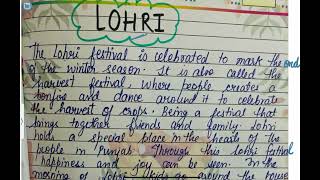 LOHRI
The Lohri festival is celebrated to mark the end
of the winter season. It is also called the
harvest festival, where people creates a
bonfire and dance around it to celebrate
the harvest of crops. Being a festival that
brings together friends and family, Lohri
holds a special place in the hearts of the
people in Punjab. Through this Lohri fetival
happiness and joy can be seen. In the
morning of Lohri, kids go around the house